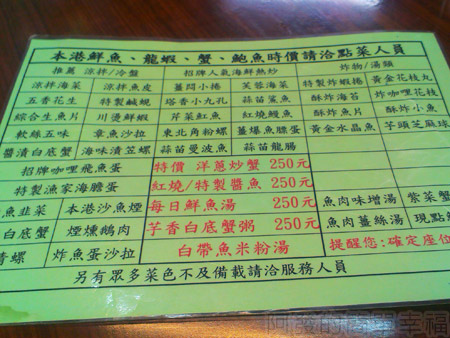 本港鮮魚、龍蝦、蟹、鮑魚時價請洽點菜人員
推薦 涼拌/冷盤 招牌人氣海鮮熱炒 炸物/湯類
涼拌海菜 涼拌魚皮 薑悶小捲 芙蓉海菜 特製炸蝦捲 黃金花枝丸
五香花生 特製鹹蜆 塔香小九孔 蒜苗鯊魚 酥炸海苔 炸咖哩花枝
綜合生魚片 川燙鮮蝦 芹菜紅魚 蒜苗鰻魚 酥炸魚片 酥炸小魚
軟絲五味 章魚沙拉 東北角粉螺 薑爆魚膘蛋 黃金水晶魚 芋頭芝麻球
醬漬白底蟹 海味漬笠螺 蒜苗曼波魚 蒜苗龍腸
招牌咖哩飛魚蛋 特價 洋蔥炒蟹 250元
特製漁家海膽蛋 紅燒/特製醬魚 250元
魚韭菜 本港沙魚煙 每日鮮魚湯 250元 魚肉味增湯 紫菜蟹
白底蟹 煙燻鵝肉 芋香白底蟹粥 250元 魚肉薑絲湯 現點
青螺 炸魚蛋沙拉 白帶魚米粉湯 提醒您:確定座位
另有眾多菜色不及備載請洽服務人員